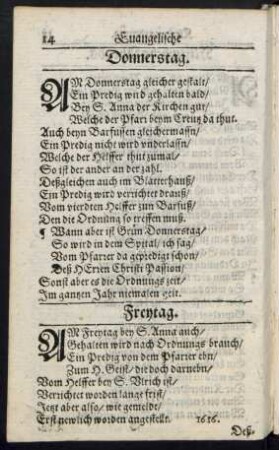 14 Euangelische
Donnerstag.
AM Donnerstag gleicher gestalt/
Ein Predig wird gehalten bald/
Bey S. Anna der Kirchen gut/
Welche der Pfarr beym Creutz da thut.
Auch beyn Barfussen gleichermassn/
Ein Predig nicht wird vnderlassn/
Welche der Helffer thut zumal/
So ist der ander an der zahl.
Deßgleichen auch im Blatterhauß/
Ein Predig wird verrichtet drauß/
Vom vierdten Helffer zum Barfuß/
Den die Ordnung so treffen muß.
¶ Wann aber ist Grün Donnerstag/
So wird in dem Spital/ ich sag/
Vom Pfarrer da geprediget schon/
Deß HErren Christi Passion/
Sonst aber es die Ordnungs zeit/
Im gantzen Jahr niemalen geit.
Freytag.
AM Freytag bey S. Anna auch/
Gehalten wird nach Ordnungs brauch/
Ein Predig von dem Pfarrer ebn/
Zum H. Geist/ die doch darnebn/
Vom Helffer bey S. Vlrich ist/
Verrichtet worden lange frist/
Jetzt aber also/ wie gemeldt/
Erst newlich worden angestellt. 1616.
Deß-